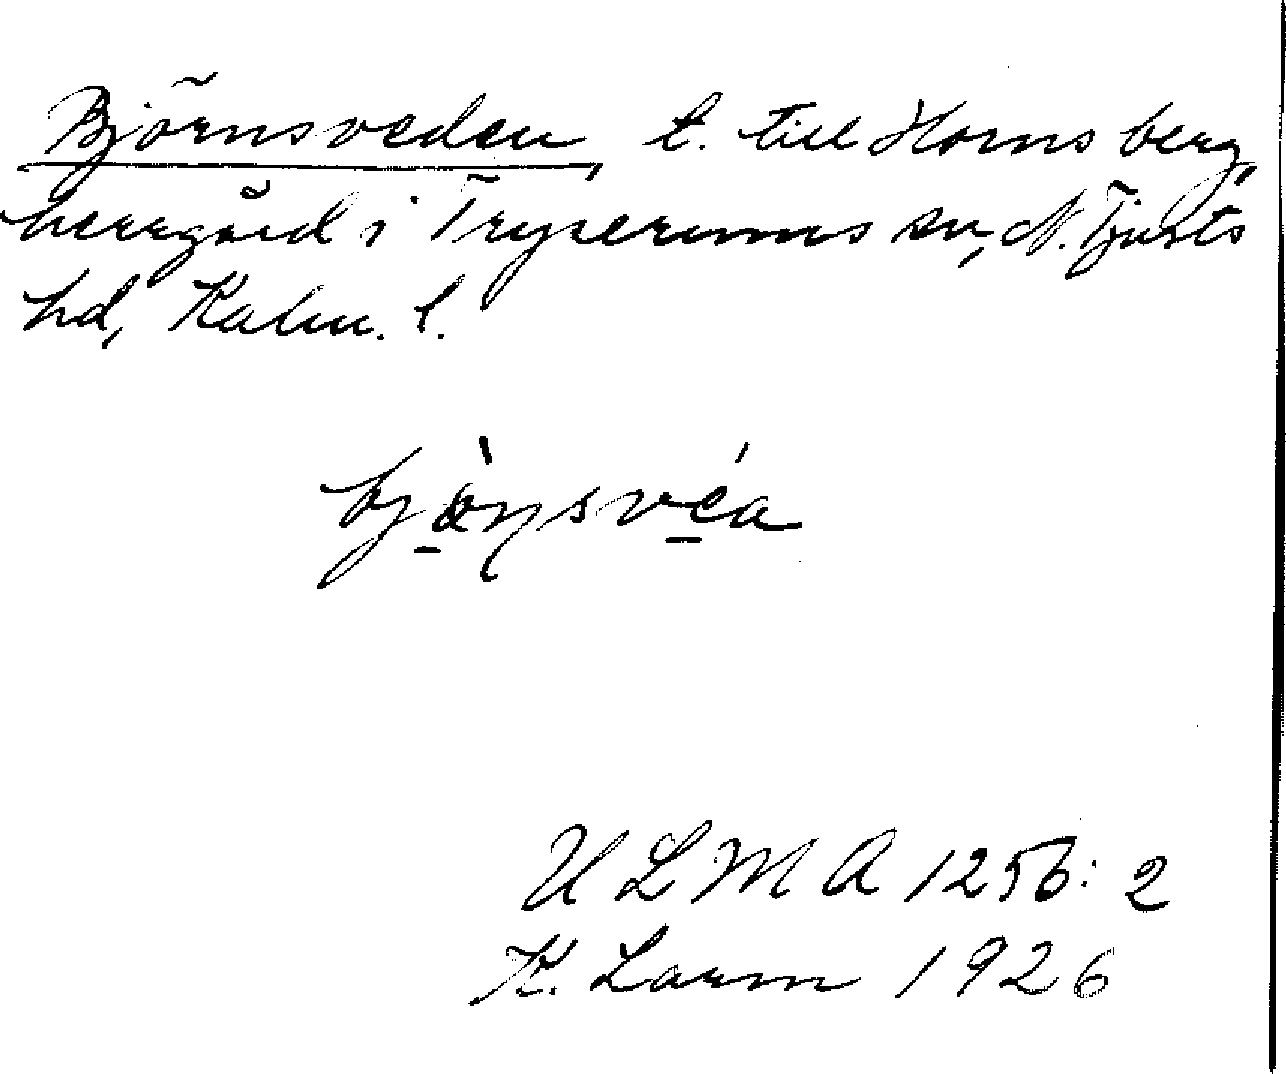 Björnsveden, t. till Hornsberg,
herrgård i Tryserums sn, N. Tjusts
hd, Kalm. l.
bjò̱ṇsvé̱a
U L M A 1256: 2
K. Larm 1926